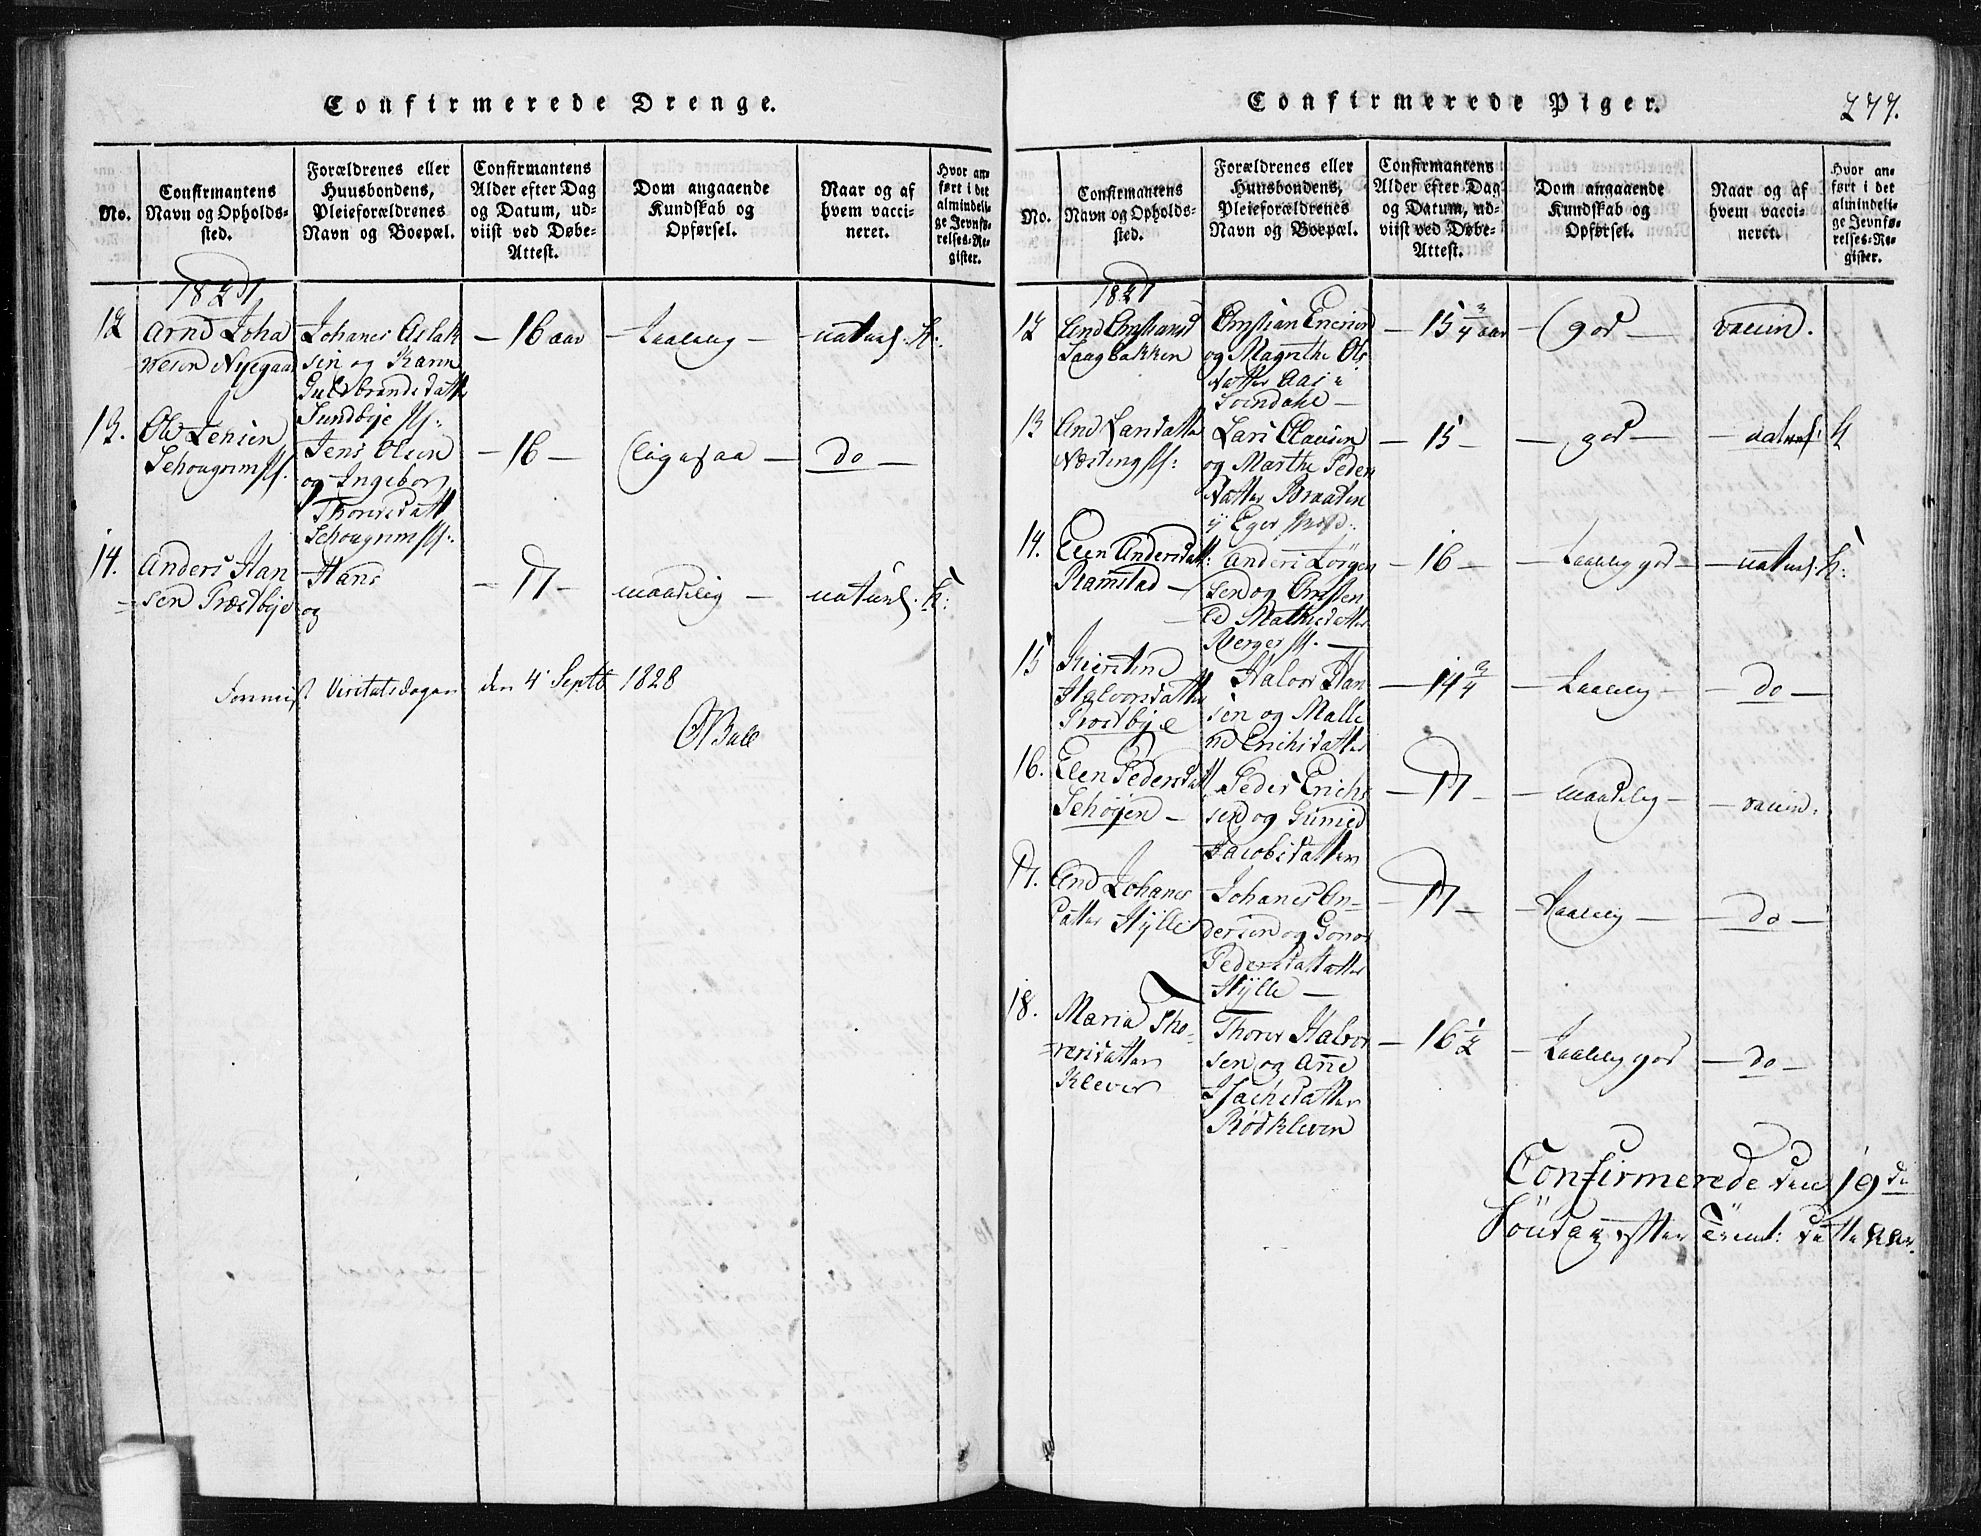 Confirmerede Drenge.
No.
Confirmantens
Navn og Opholds-
sted.
Forældrenes eller
Huusbondens,
Pleieforældrenes
Navn og Boepæl.
Confirmantens
Alder efter Dag
og Datum, ud-
viist ved Døbe-
Attest.
Dom angaaende
Kundskab og
Opførsel.
Naar og af
hvem vacci-
neret.
Hvor an-
ført i det
almindeli-
ge Jevnfø-
relses-Re-
gister.
1827
12
Arne Joha
nesen Nyegaar
Johanes Aslak
sen og Karen
Gulbrandsdatt
Sundbye
16 aar
Taalelig
naturl. K:
13.
Ole Jensen
Schougrim
Jens Olsen
og Ingebor
Thoresdatt
Schougrim
16
ligesaa
do
14.
Anders Han
sen Træstbye
Hans
og
17
maadelig
naturl. K:
Visitatsdagen den 4 Septb 1828
Confirmerede Piger.
277.
No.
Confirmantens
Navn og Opholds-
sted.
Forældrenes eller
Huusbondens,
Pleieforældrenes
Navn og Boepæl.
Confirmantens
Alder efter Dag
og Datum, ud-
viist ved Døbe-
Attest.
Dom angaaende
Kundskab og
Opførsel.
Naar og af
hvem vacci-
neret.
Hvor an-
ført i det
almindeli-
ge Jevnfø-
relses-Re-
gister.
1827
12
Saugbakken
Christian
og Magrethe Ols
datter Aas i
Svendale
15 3/4 aar
god
vaccin.
13
Næsteng
Lars Clausen
og Marthe Peders
datter Braaten
Eger
15
god
naturl: K
14.
Elen Andersdatt:
Ramstad
Anders Jörgen
sen og Christen
ce Mathisdatter
Berger
16
Taalelig god
naturl. K:
15
Kierstine
Halvorsdatter
Træstbye
Halvor Han
sen og Malle
ne Erichsdatter
14 3/4
Taalelig
do
16.
Elen Pedersdatt
Schøyen
Peder Erichs
sen og Gunild
Jacobsdatter
17
maadelig
vaccin:
17.
Ane Johanes
datter Hylle
Johanes An-
dersen og Gonor
Pedersdatter
Hylle
17
Taalelig
do
18.
Maria Tho-
resdatter
Klever
Thorer Halvor
sen og Ane
Isachsdatter
Rödkleven
16 1/2
Taalelig god
do
Confirmerede den 19de
Söndag efter Trinit: dette Aar.